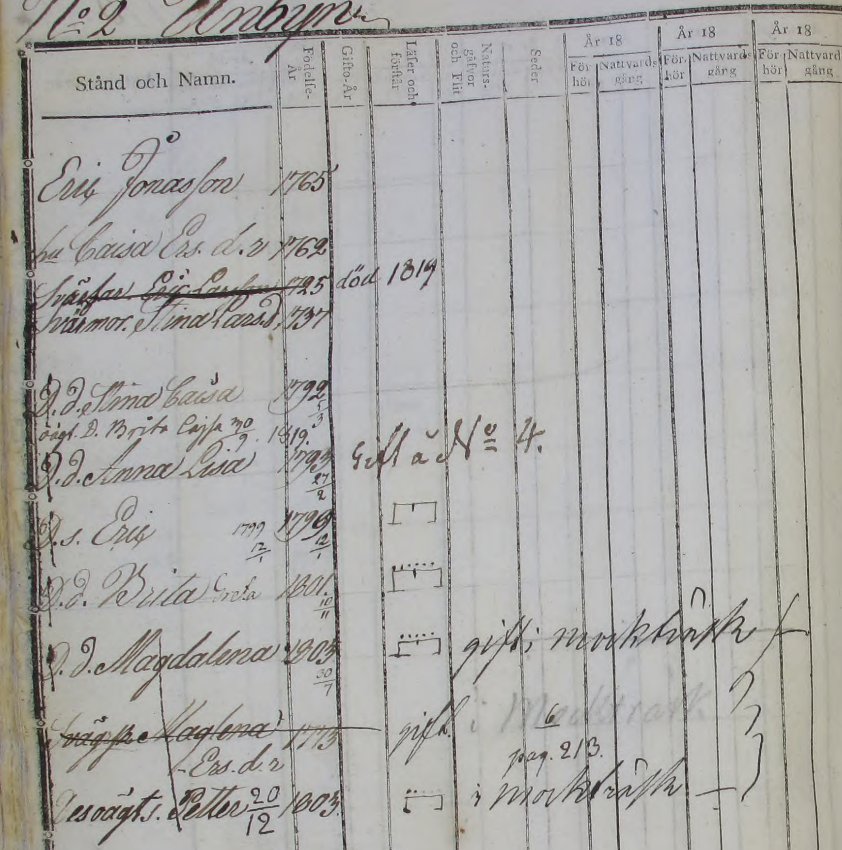 No 2 Unbyn
Stånd och Namn. Födelse-År Gifto-År Läser och förstår Naturs-gåfvor och Flit Seder År 18 För-hör Nattvards gång År 18 För-hör Nattvards gång År 18 För-hör Nattvards gång
Eric Jonasson 1765
hu Caisa Ers. d.r 1762
Svärfar Eric Larsson 1725 död 1819
Svärmor. Stina Lars.d 1737
D.d. Stina Caisa 1792 5/3
oägt. D. Brita Cajsa 30/9 1819.
D.d. Anna Lisa 1793 27/2 Gift å No 4.
D.s. Eric 1799 12/1 1799 12/1
D.d. Brita Greta 1801. 10/11
D.d. Magdalena 1805 30/7 gift i mockträsk
i Mockträsk
Maglena 1773 gift. 6
Ers.d.r pag. 213.
Des oägt s. Petter 20/12 1803. i mockträsk